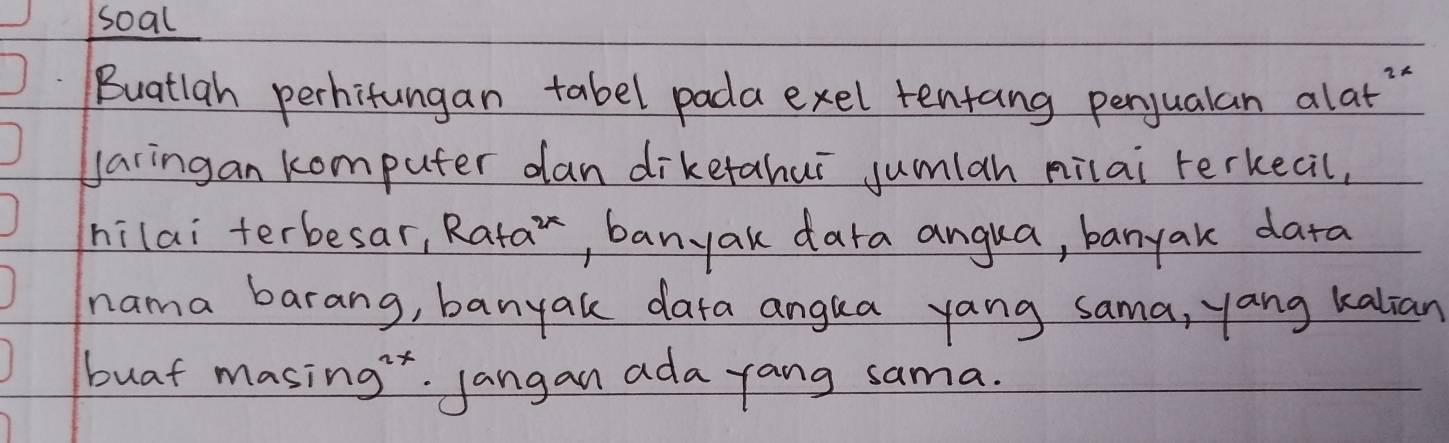 soal
Buatlah perhitungan tabel pada exel tentang penjualan alat²ˣ
Jaringan komputer dan diketahui jumlah nilai terkecil,
nilai terbesar, Rata²ˣ, banyak data angka, banyak data
nama barang, banyak data angka yang sama, yang kalian
buat masing²ˣ. Jangan ada yang sama.